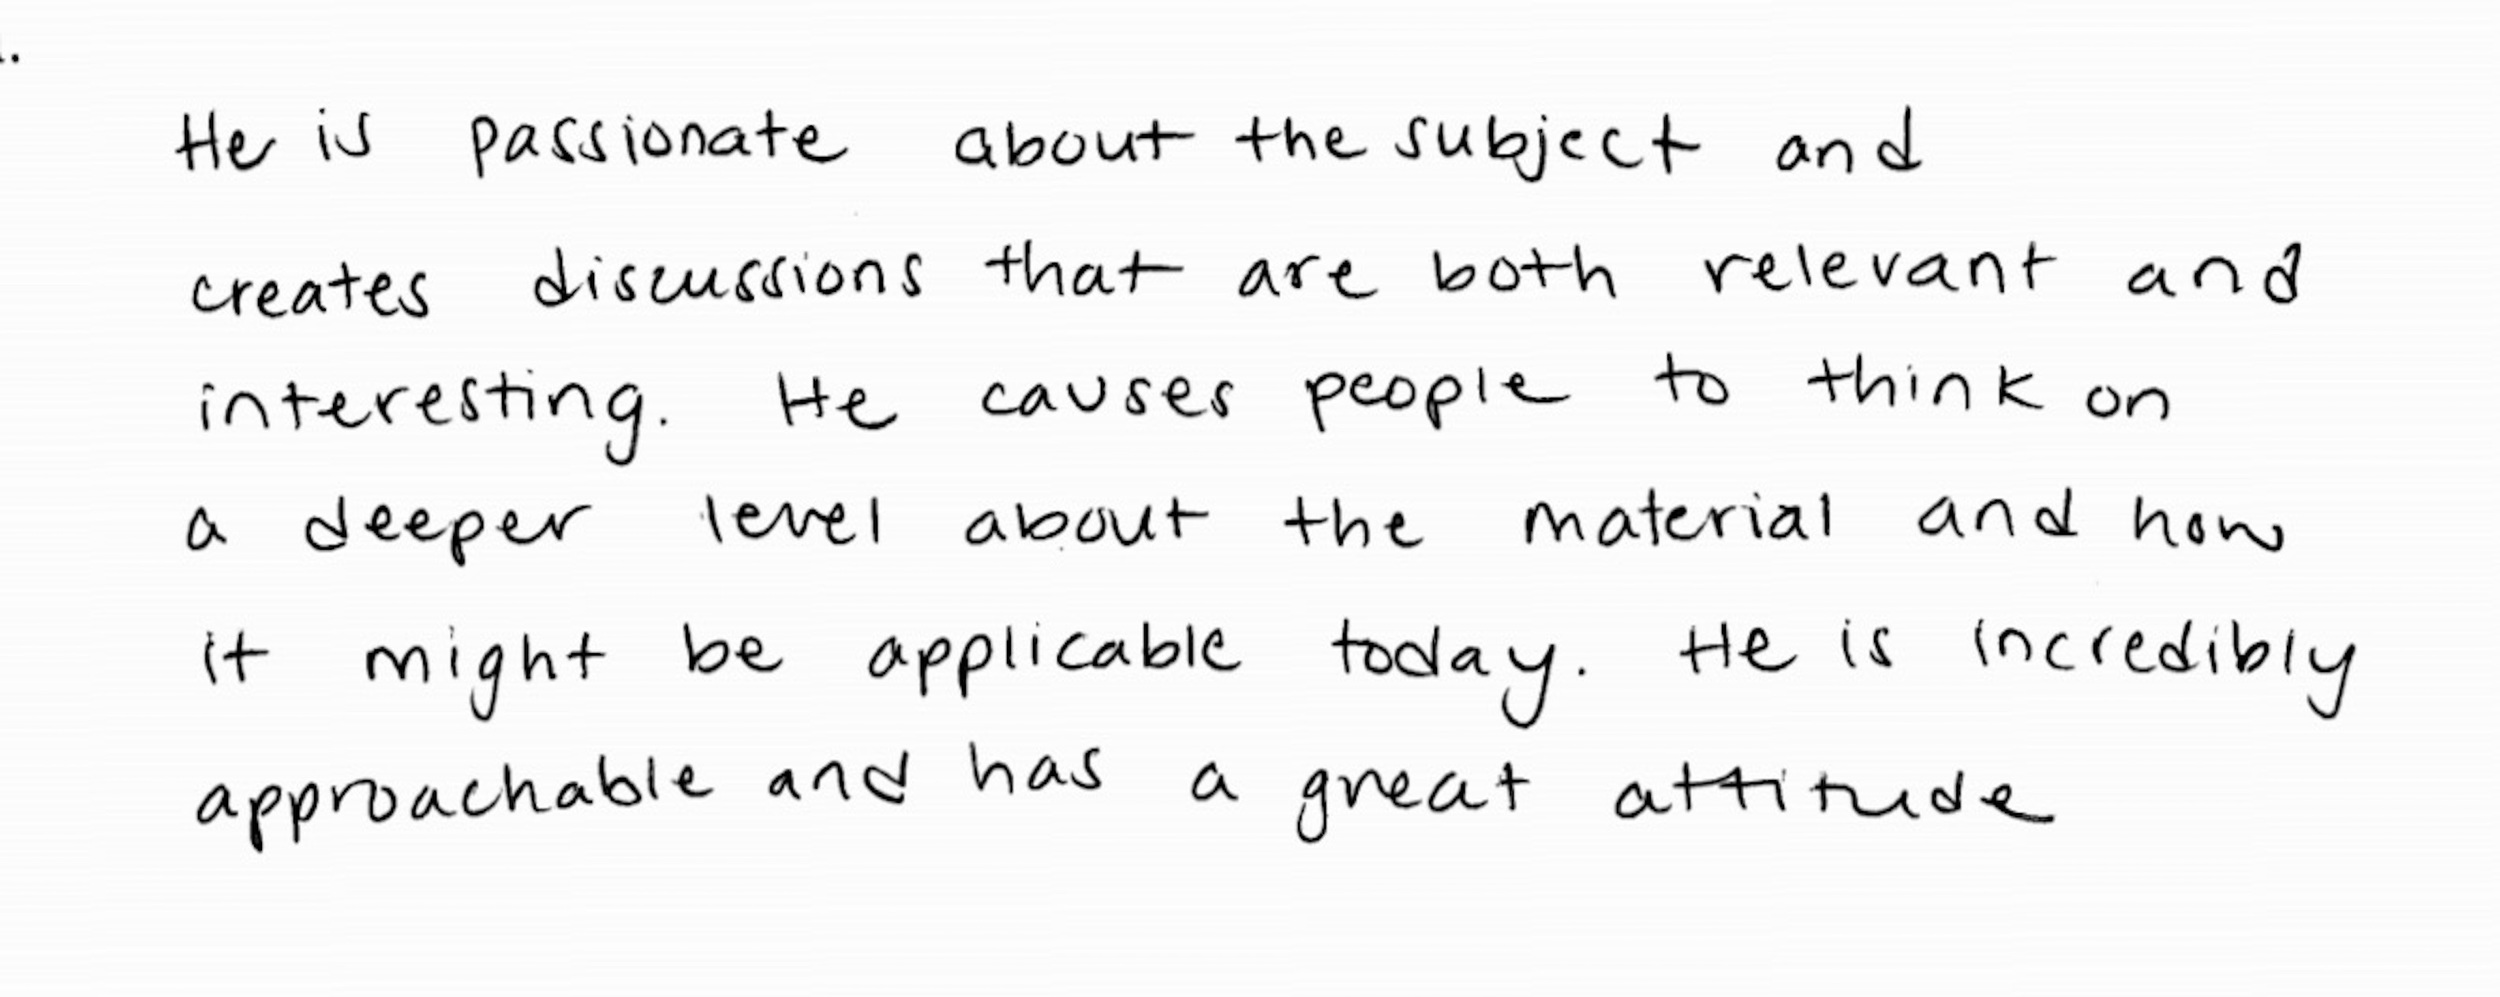 He is passionate about the subject and
creates discussions that are both relevant and
interesting. He causes people to think on
a deeper level about the material and how
it might be applicable today. He is incredibly
approachable and has a great attitude